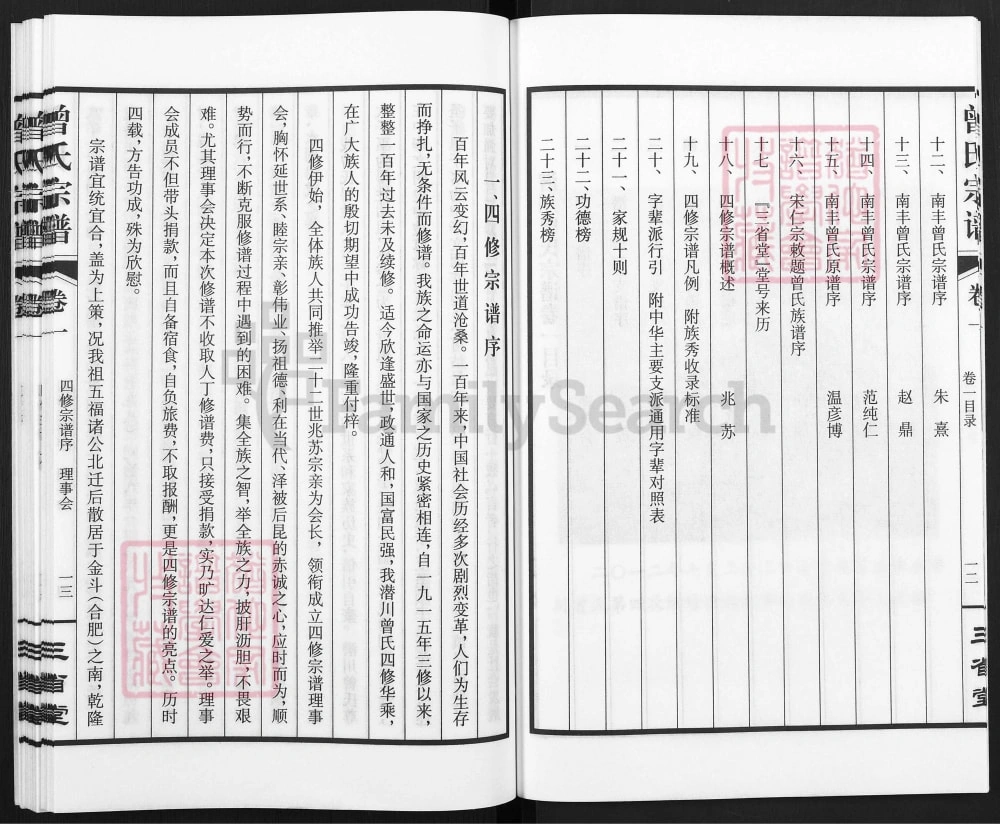 曾氏宗谱 卷一
卷一目录
一二
三省堂
十二、南丰曾氏宗谱序 朱熹
十三、南丰曾氏宗谱序 赵鼎
十四、南丰曾氏宗谱序 范纯仁
十五、南丰曾氏原谱序 温彦博
十六、宋仁宗敕题曾氏族谱序
十七、『三省堂』堂号来历
十八、四修宗谱概述 兆苏
十九、四修宗谱凡例 附族秀收录标准
二十、字辈派行引 附中华主要支派通用字辈对照表
二十一、家规十则
二十二、功德榜
二十三、族秀榜
一、四修宗谱序
百年风云变幻，百年世道沧桑。一百年来，中国社会历经多次剧烈变革，人们为生存
而挣扎，无条件而修谱。我族之命运亦与国家之历史紧密相连，自一九一五年三修以来，
整整一百年过去未及续修。适今欣逢盛世，政通人和，国富民强，我潜川曾氏四修华乘，
在广大族人的殷切期望中成功告竣，隆重付梓。
四修伊始，全体族人共同推举二十二世兆苏宗亲为会长，领衔成立四修宗谱理事
会，胸怀延世系、睦宗亲、彰伟业、扬祖德、利在当代、泽被后昆的赤诚之心，应时而为，顺
势而行，不断克服修谱过程中遇到的困难。集全族之智，举全族之力，披肝沥胆，不畏艰
难。尤其理事会决定本次修谱不收取人丁修谱费，只接受捐款，实乃旷达仁爱之举。理事
会成员不但带头捐款，而且自备宿食，自负旅费，不取报酬，更是四修宗谱的亮点。历时
四载，方告功成，殊为欣慰。
宗谱宜统宜合，盖为上策，况我祖五福诸公北迁后散居于金斗（合肥）之南，乾隆
曾氏宗谱 卷一
四修宗谱序 理事会
一三
三省堂
FamilySearch